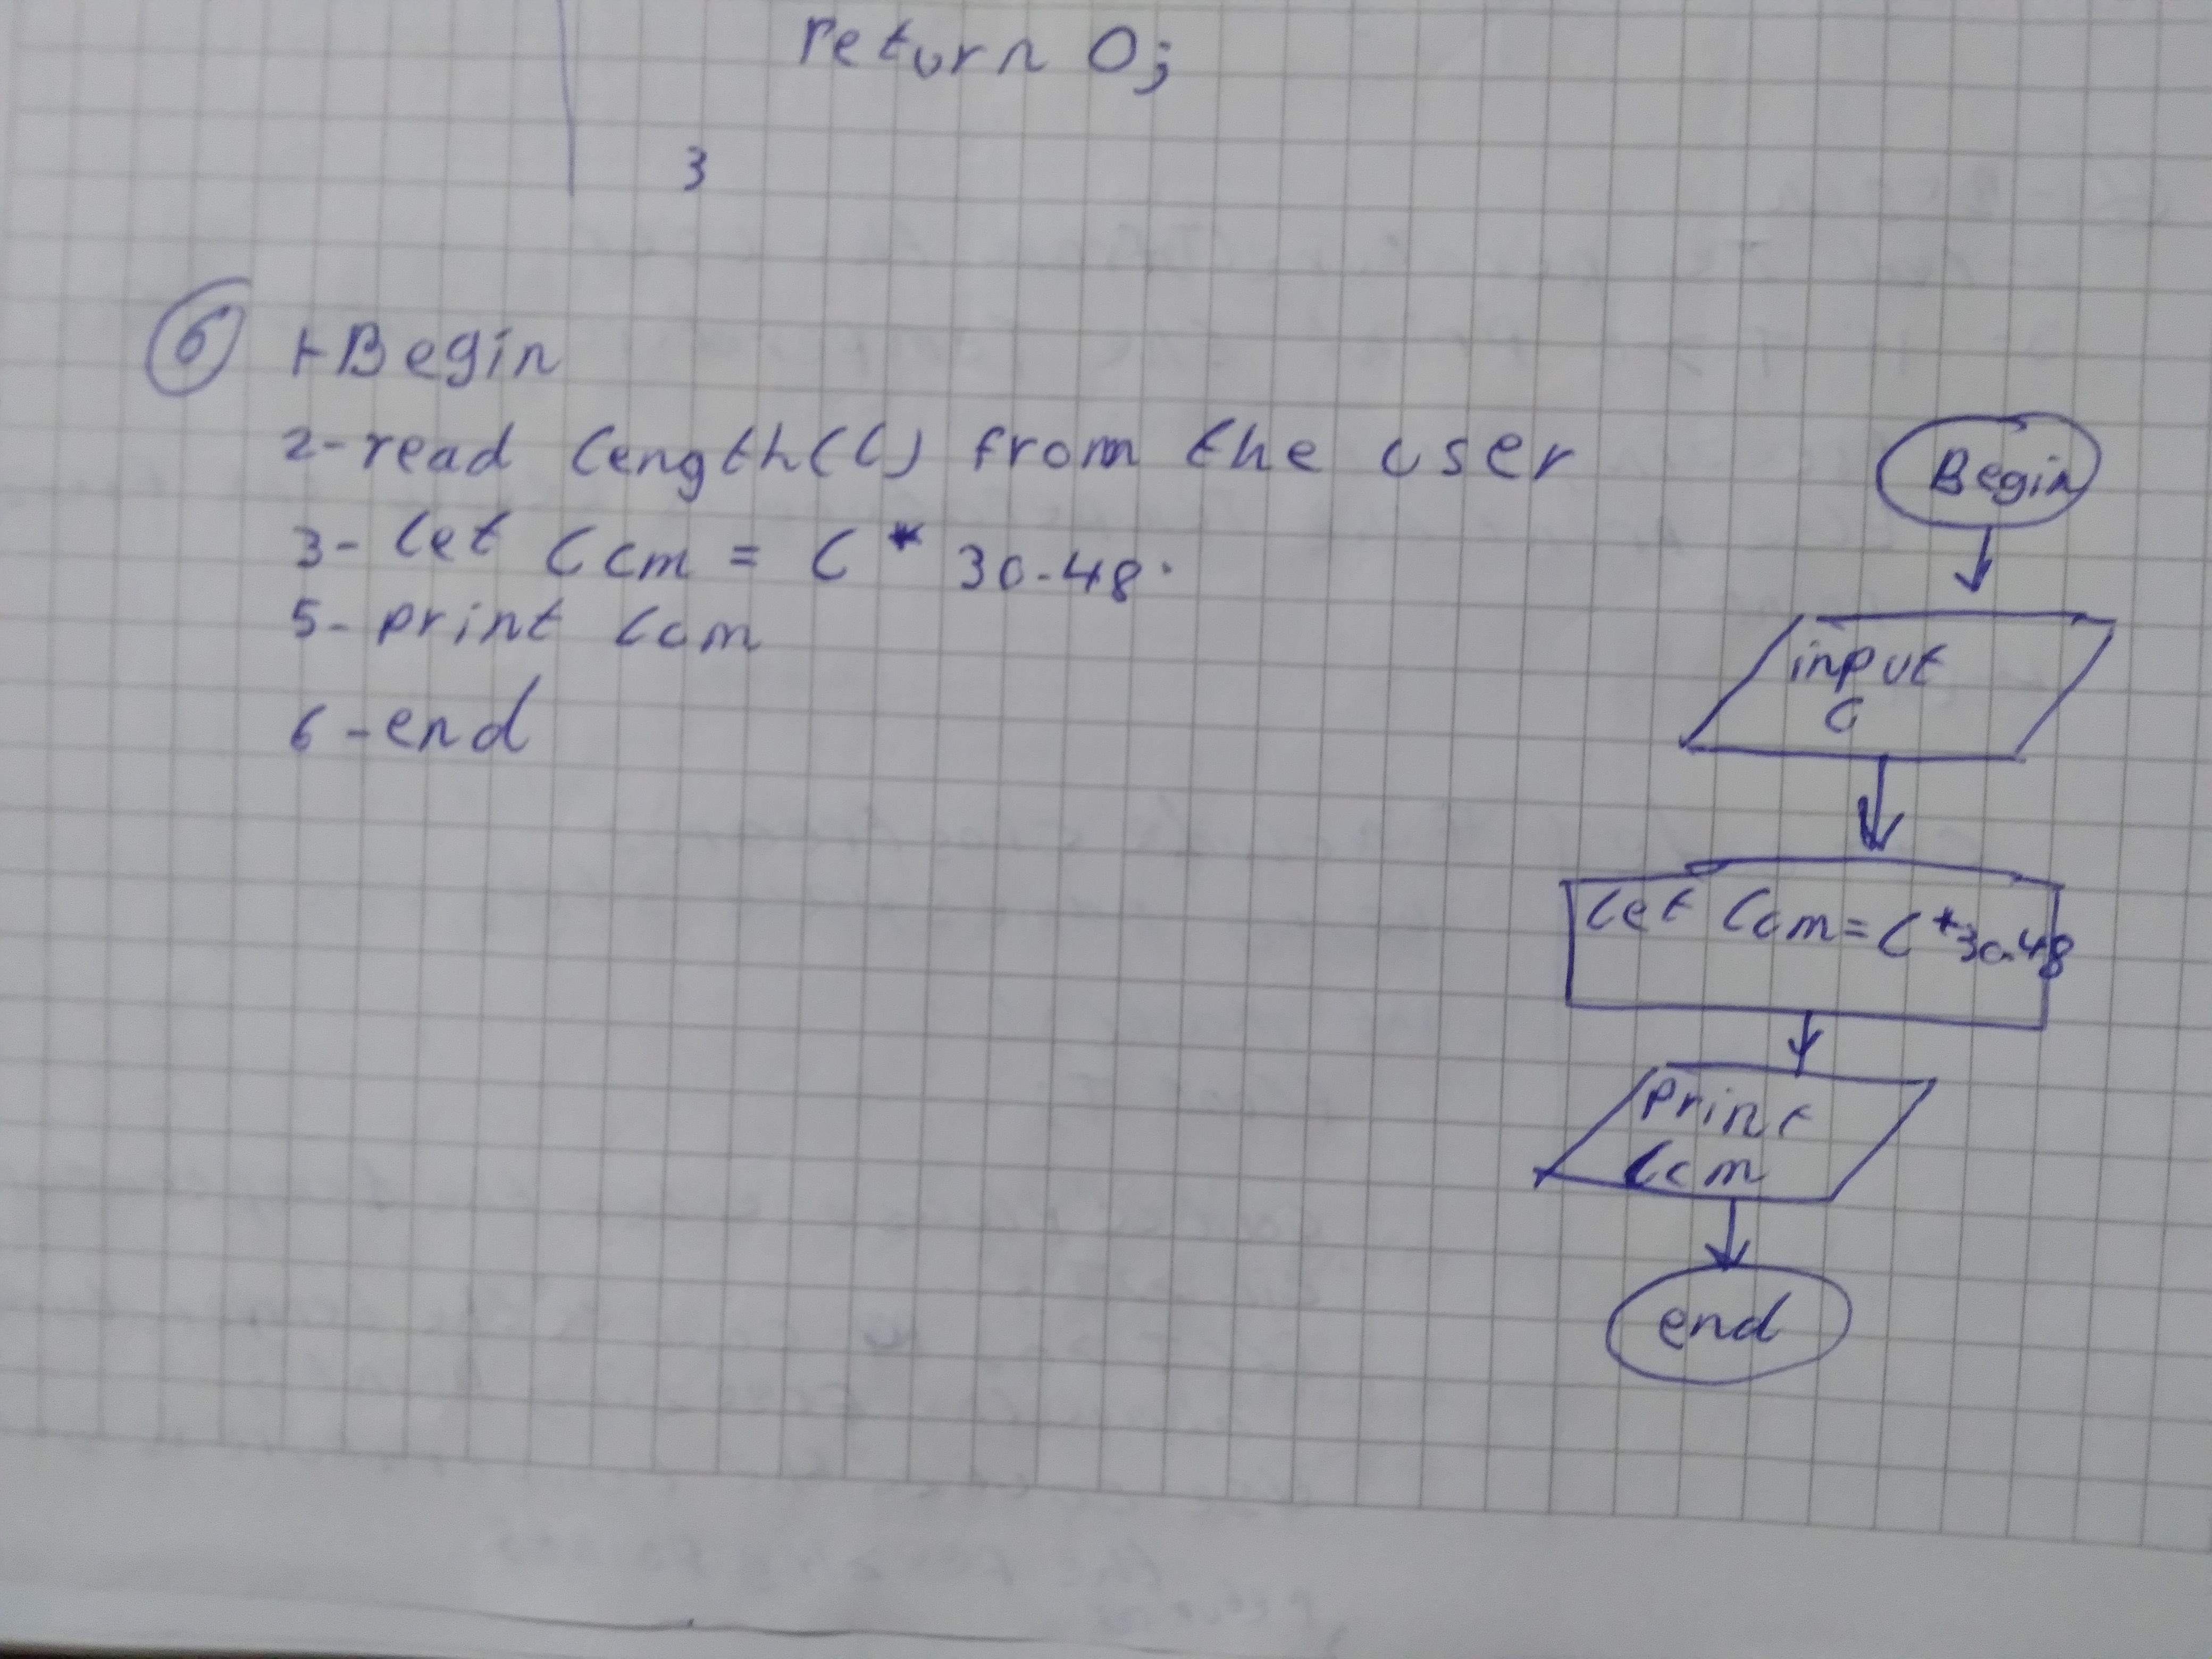 return 0;
}
6 1-Begin
2-read length(l) from the user
3- let lcm = l * 30.48.
5- print lcm
6-end
Begin
input
l
let lcm = l * 30.48
print
lcm
end